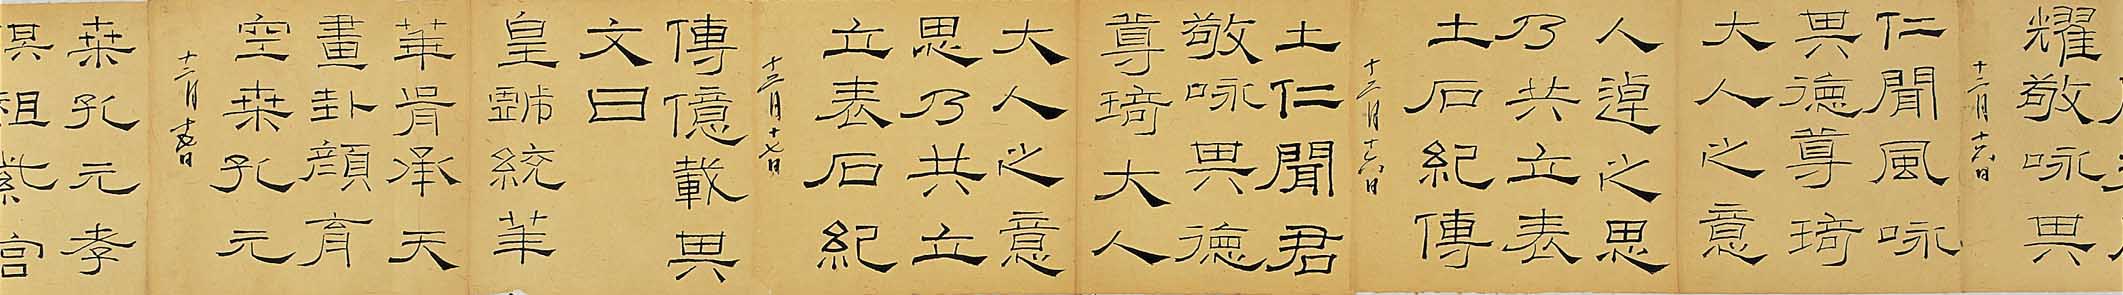 耀敬咏其
十二月
仁聞風咏
其德尊琦
大人之意
人逴之思
乃共立表
土石紀傳
十二月十六日
土仁聞君
敬咏其德
尊琦大人
大人之意
思乃共立
立表石紀
十二月十七日
傳億載其
文曰
皇戲統華
華胥承天
畫卦顏育
空桑孔元
十二月
桑孔元孝
俱祖紫宮